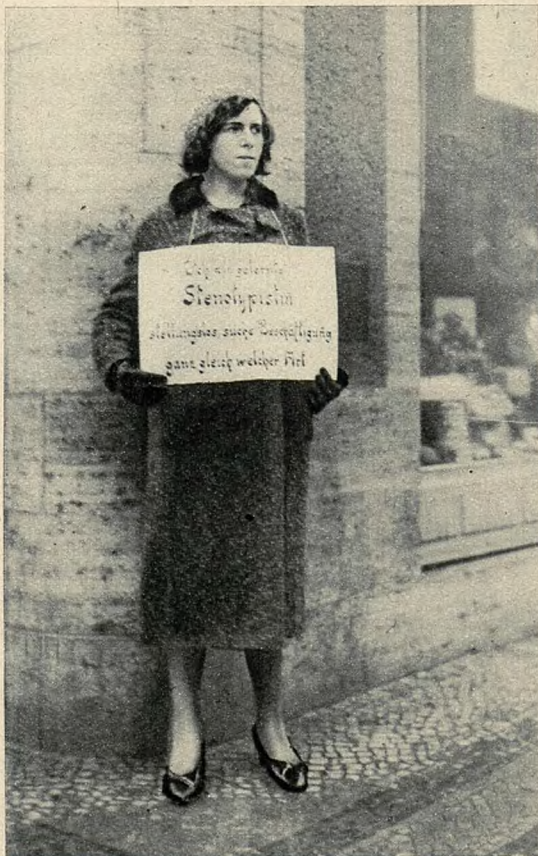 Ich bin gelernte
Stenotypistin
stellungslos, suche Beschäftigung
ganz gleich welcher Art